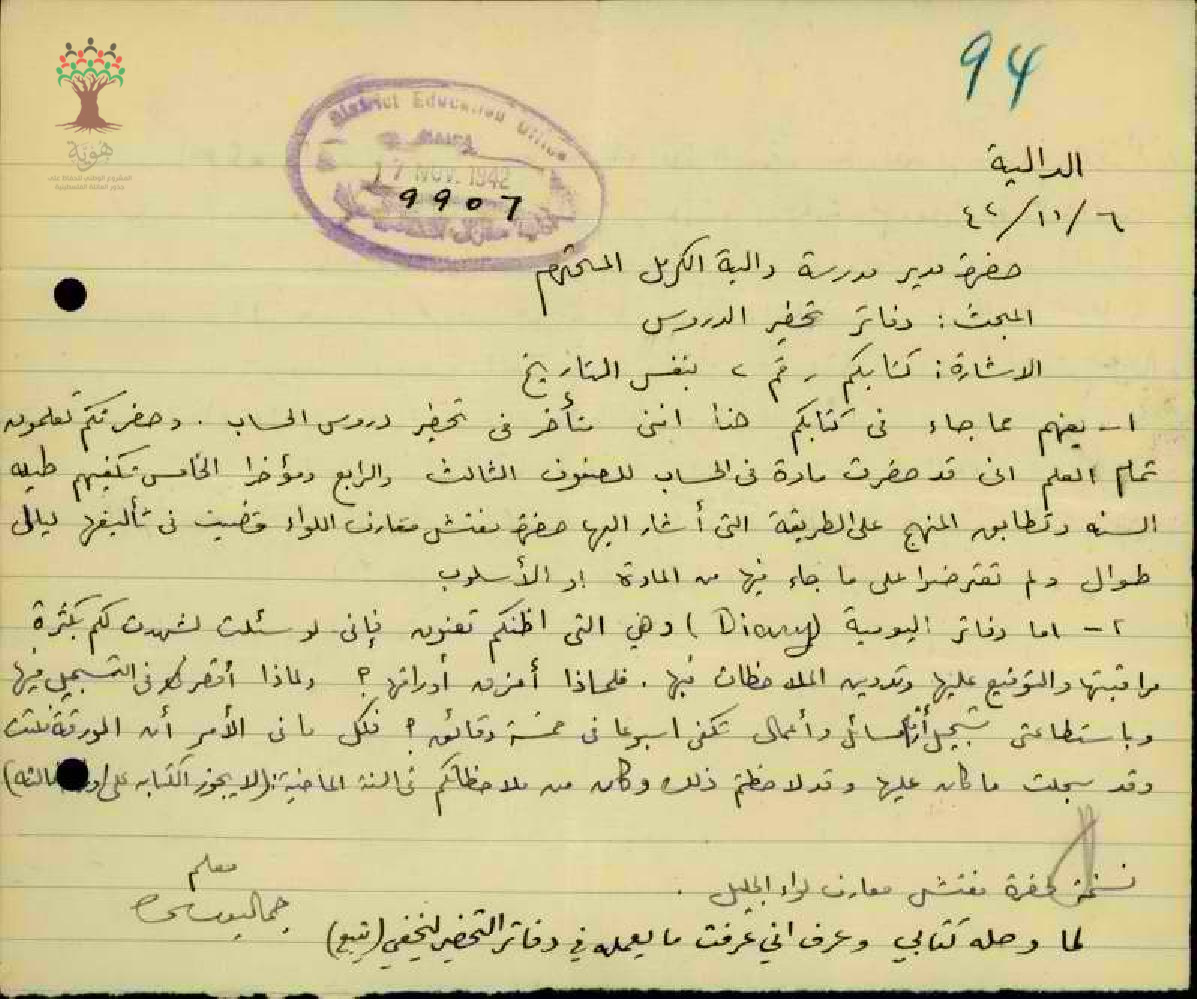 94
هوية
المشروع الوطني للحفاظ على
جذور العائلة الفلسطينية
District Education Office
HAIFA
17 NOV. 1942
9907
الدالية
٦/١١/٤٢
حضرة مدير مدرسة دالية الكرمل المحترم
المبحث: دفاتر تحضير الدروس
الاشارة: كتابكم رقم ٢ بنفس التاريخ
١- يفهم مما جاء في كتابكم هذا انني متأخر في تحضير دروس الحساب. وحضرتكم تعلمون
تمام العلم اني قد حضرت مادة في الحساب للصفوف الثالث والرابع ومؤخرا الخامس تكفيهم طيلة
السنه وتطابق المنهج على الطريقة التي أشار اليها حضرة مفتش معارف اللواء وقضيت في تأليفها ليالي
طوال ولم تعترضوا على ما جاء فيها من المادة او الأسلوب
٢- اما دفاتر اليومية (Diary) وهي التي اظنكم تعنون فإني لو سئلت لشهدت لكم بكثرة
مراقبتها والتوقيع عليها وتدوين الملاحظات فيها. فلماذا أمزق أوراقها؟ ولماذا أقصر في التسجيل فيها
وباستطاعتي تسجيل مسائل وأعمال تكفي اسبوعا في خمسة دقائق؟ فكل ما في الأمر أن الورقة فلتت
وقد سجلت ما كان عليها وقد لاحظتم ذلك وكان من ملاحظاتكم في السنة الماضية: (لا يجوز الكتابه على
معلم
نسخة لحضرة مفتش معارف لواء الجليل.
لما وصله كتابي وعرف اني عرفت ما يعمله في دفاتر التحضير ليخفي (يتبع)